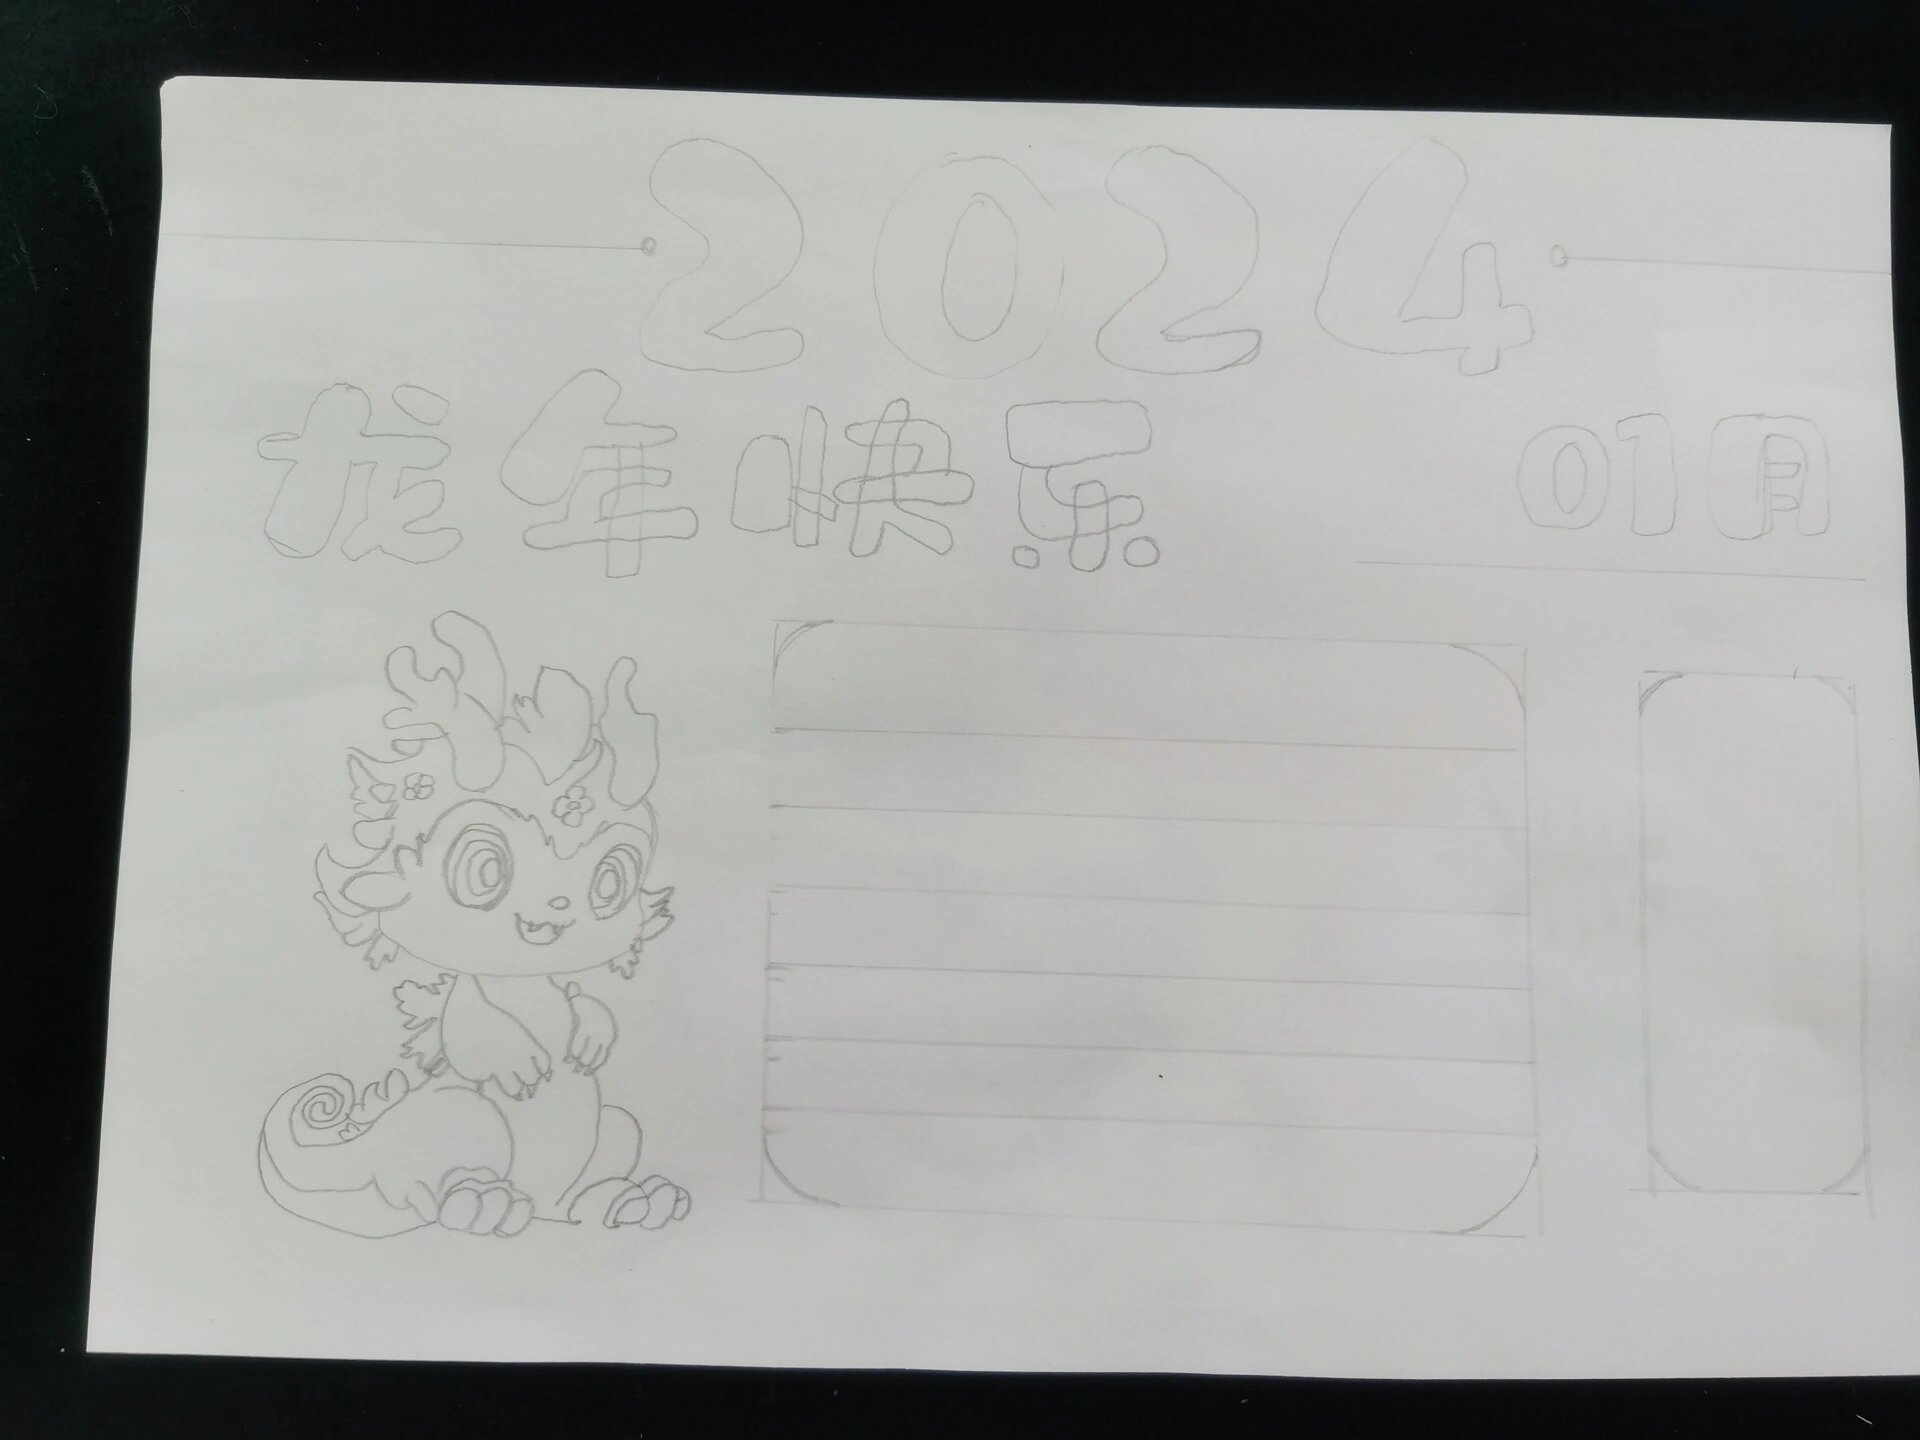 2024
龙年快乐
01月